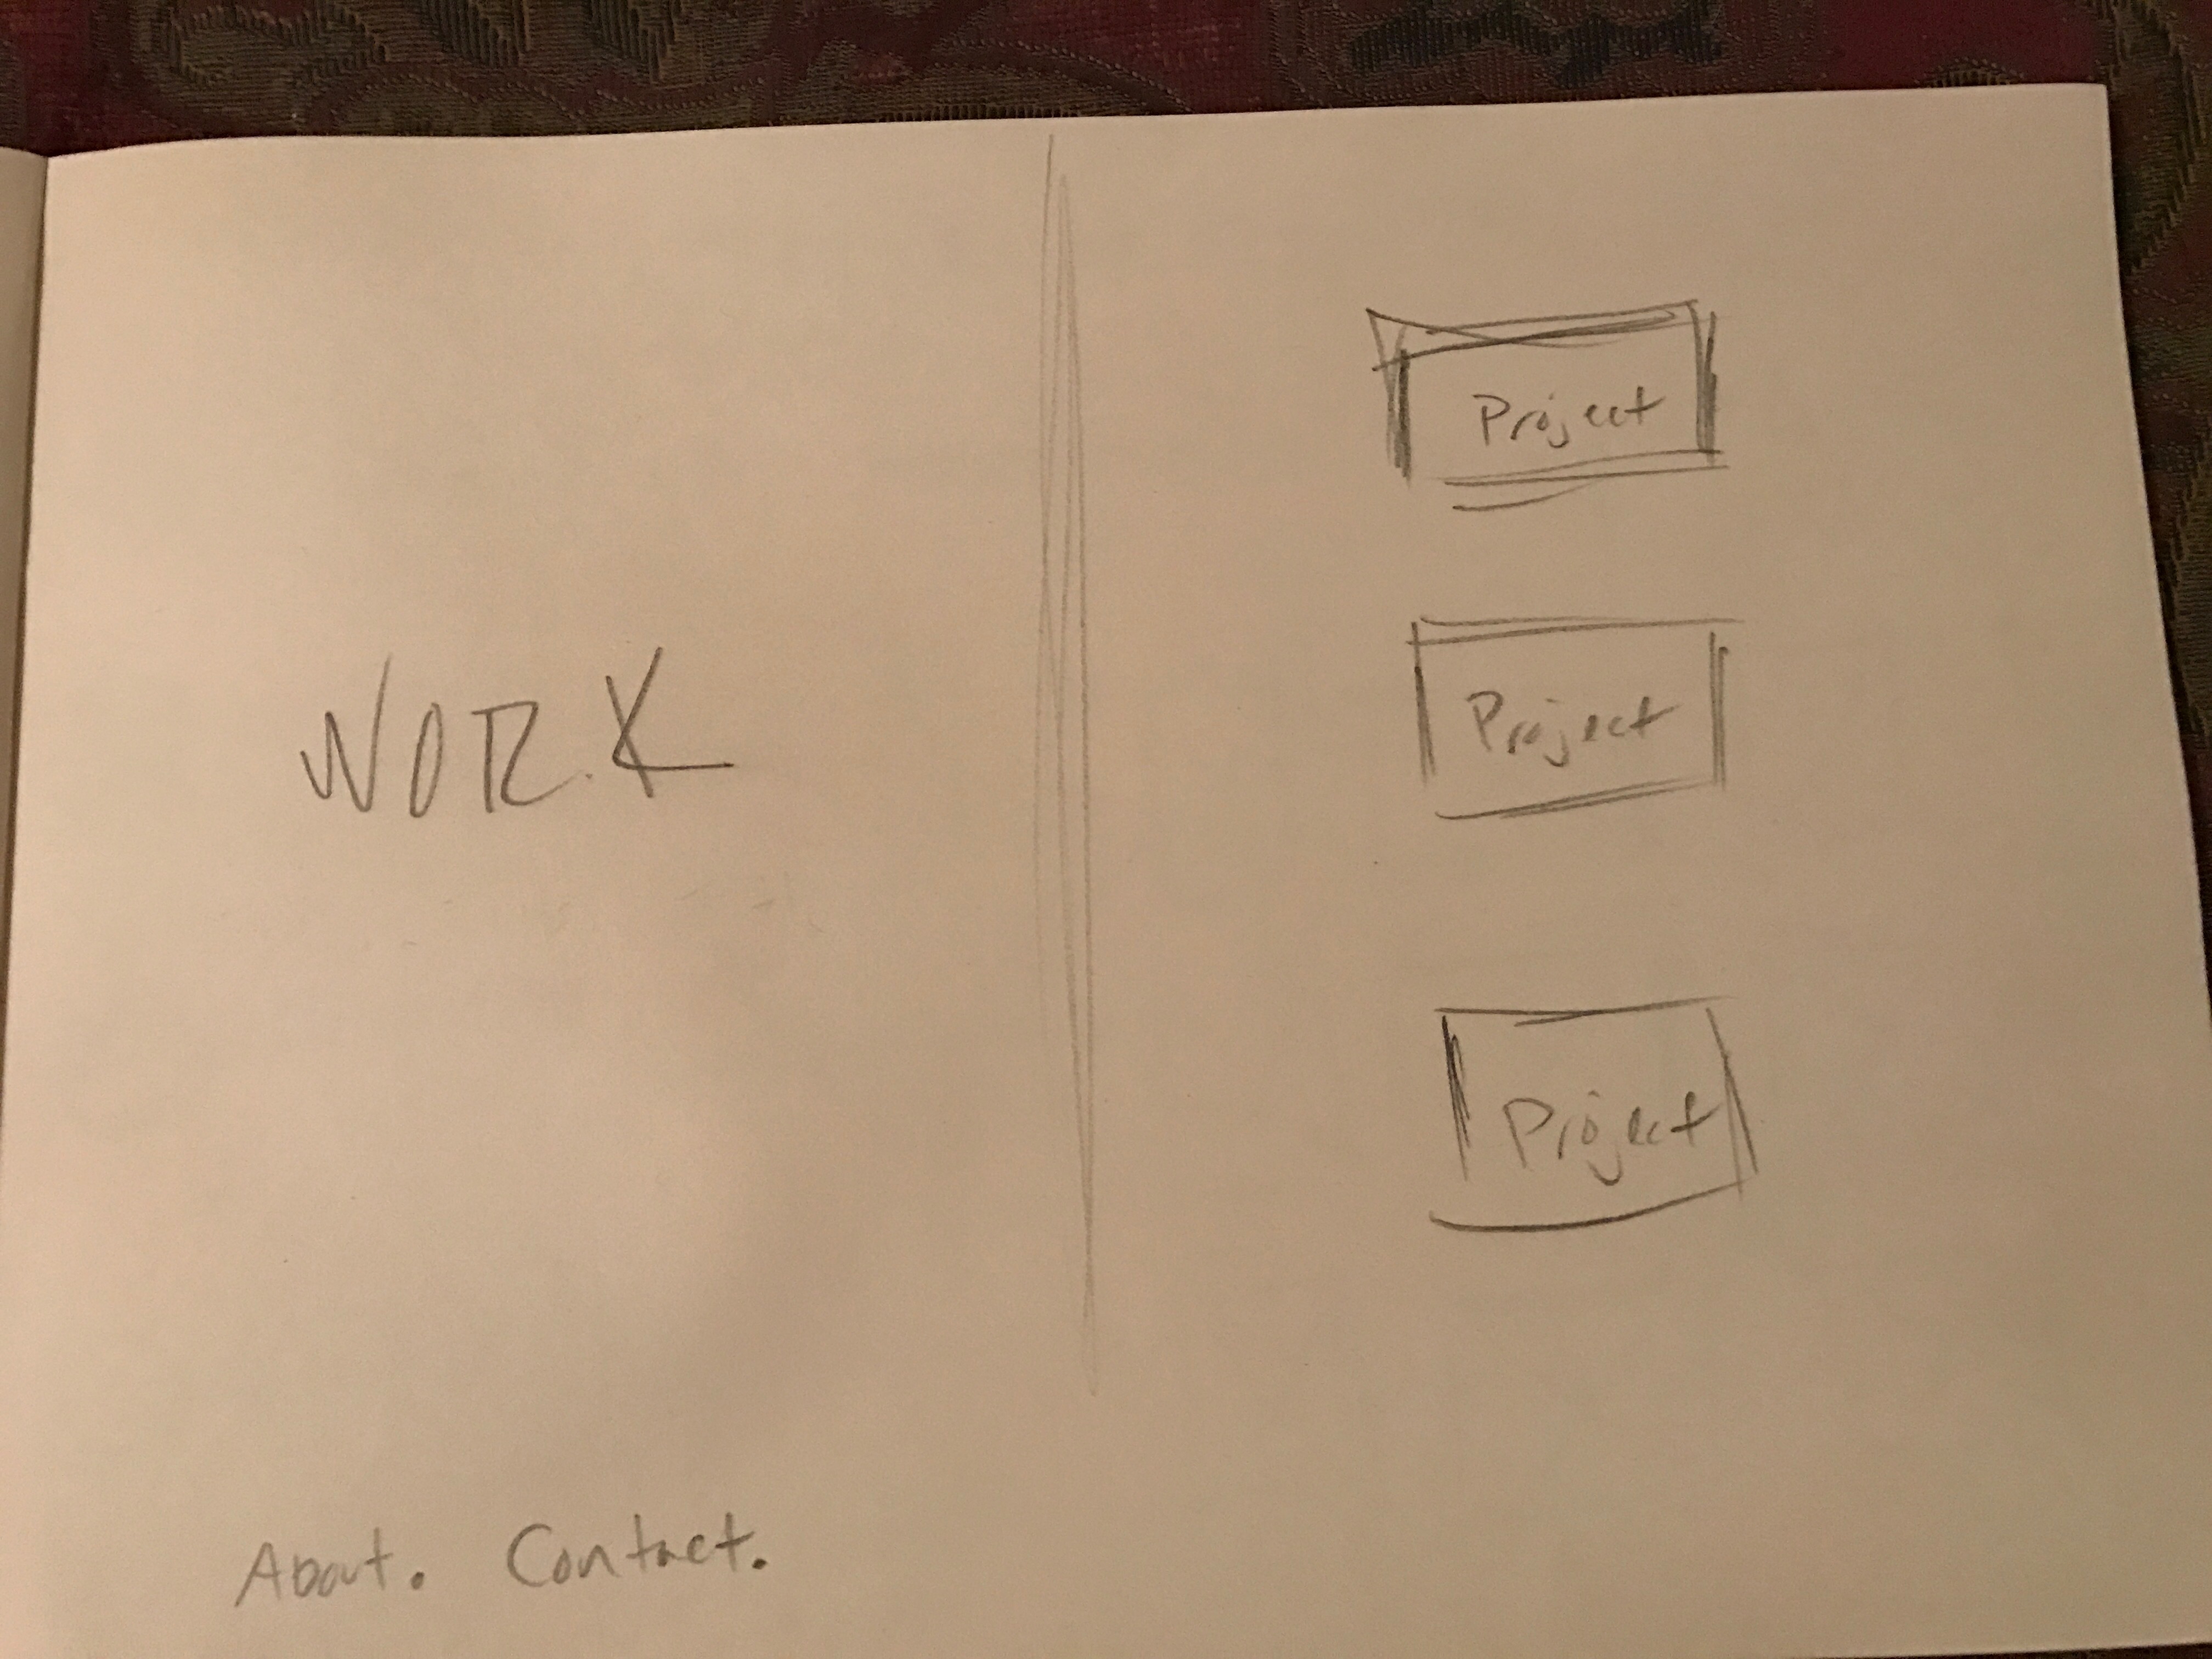 WORK
About. Contact.
Project
Project
Project